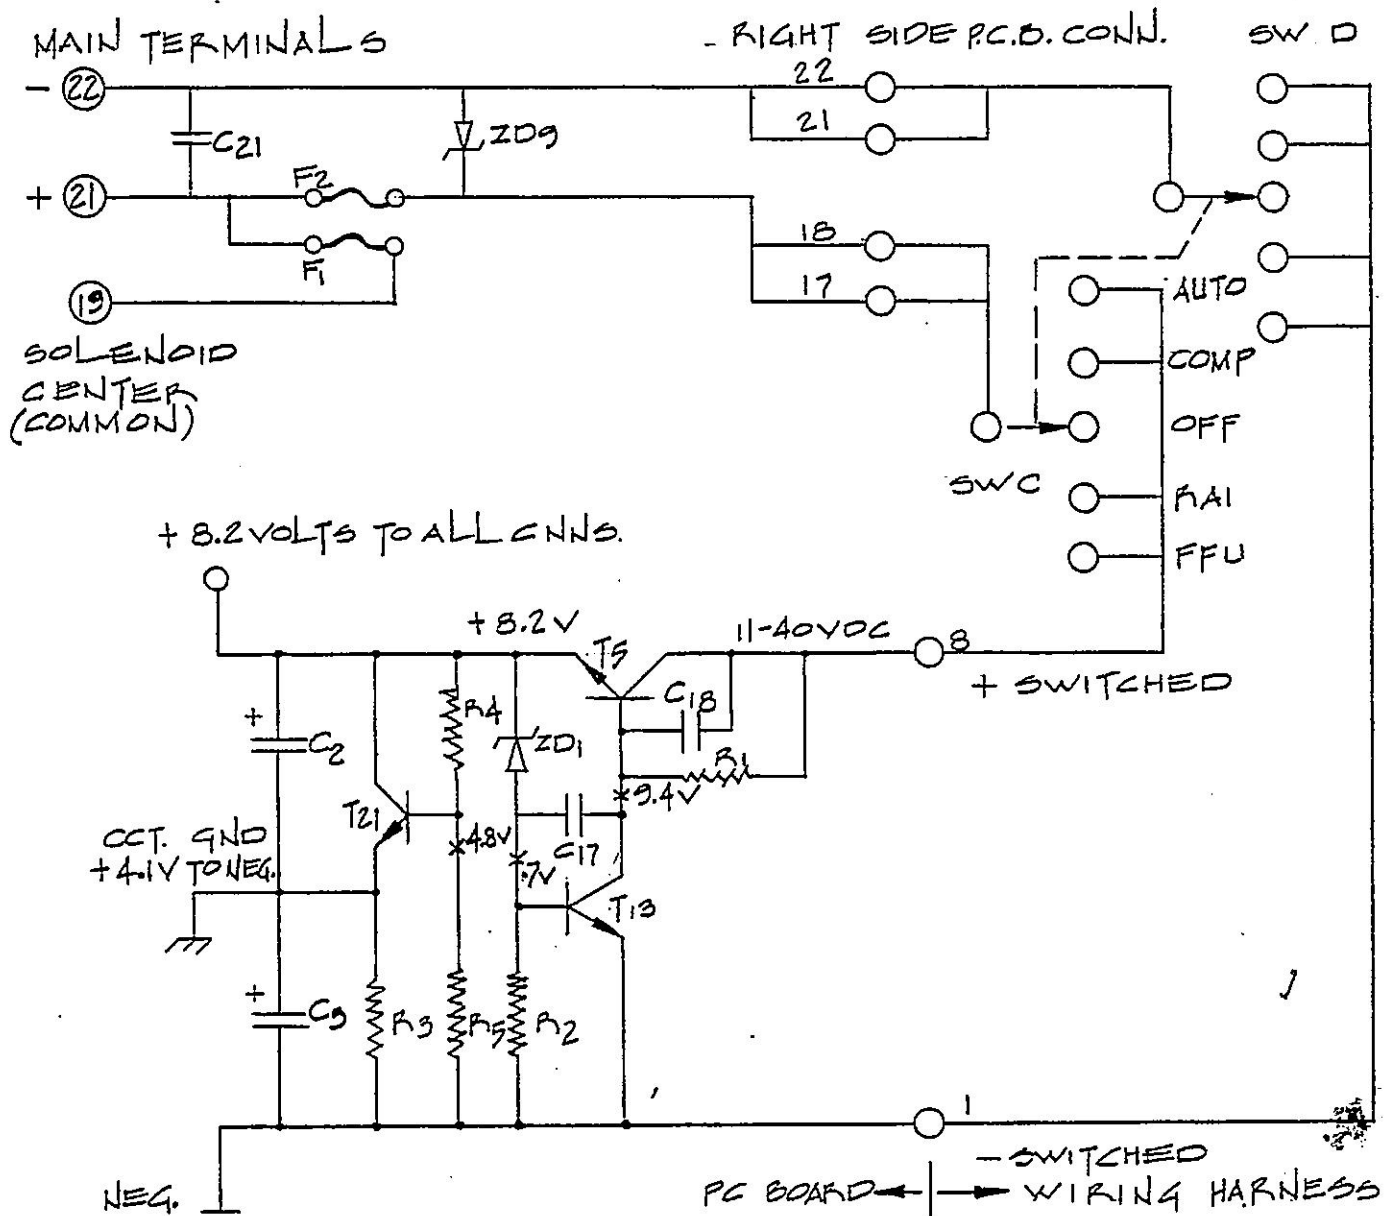 MAIN TERMINALS
RIGHT SIDE P.C.B. CONN.
SW D
- 22
22
21
C21
ZD9
+ 21
F2
F1
18
17
19
SOLENOID
CENTER
(COMMON)
AUTO
COMP
OFF
SWC
RAI
FFU
+ 8.2 VOLTS TO ALL CNNS.
+8.2V
T5
11-40VDC
8
+ SWITCHED
C18
R4
ZD1
R1
+
C2
9.4V
T21
C17
4.8V
.7V
CCT. GND
+4.1V TO NEG.
T13
+
C9
R3
R5
R2
1
- SWITCHED
NEG.
PC BOARD
WIRING HARNESS